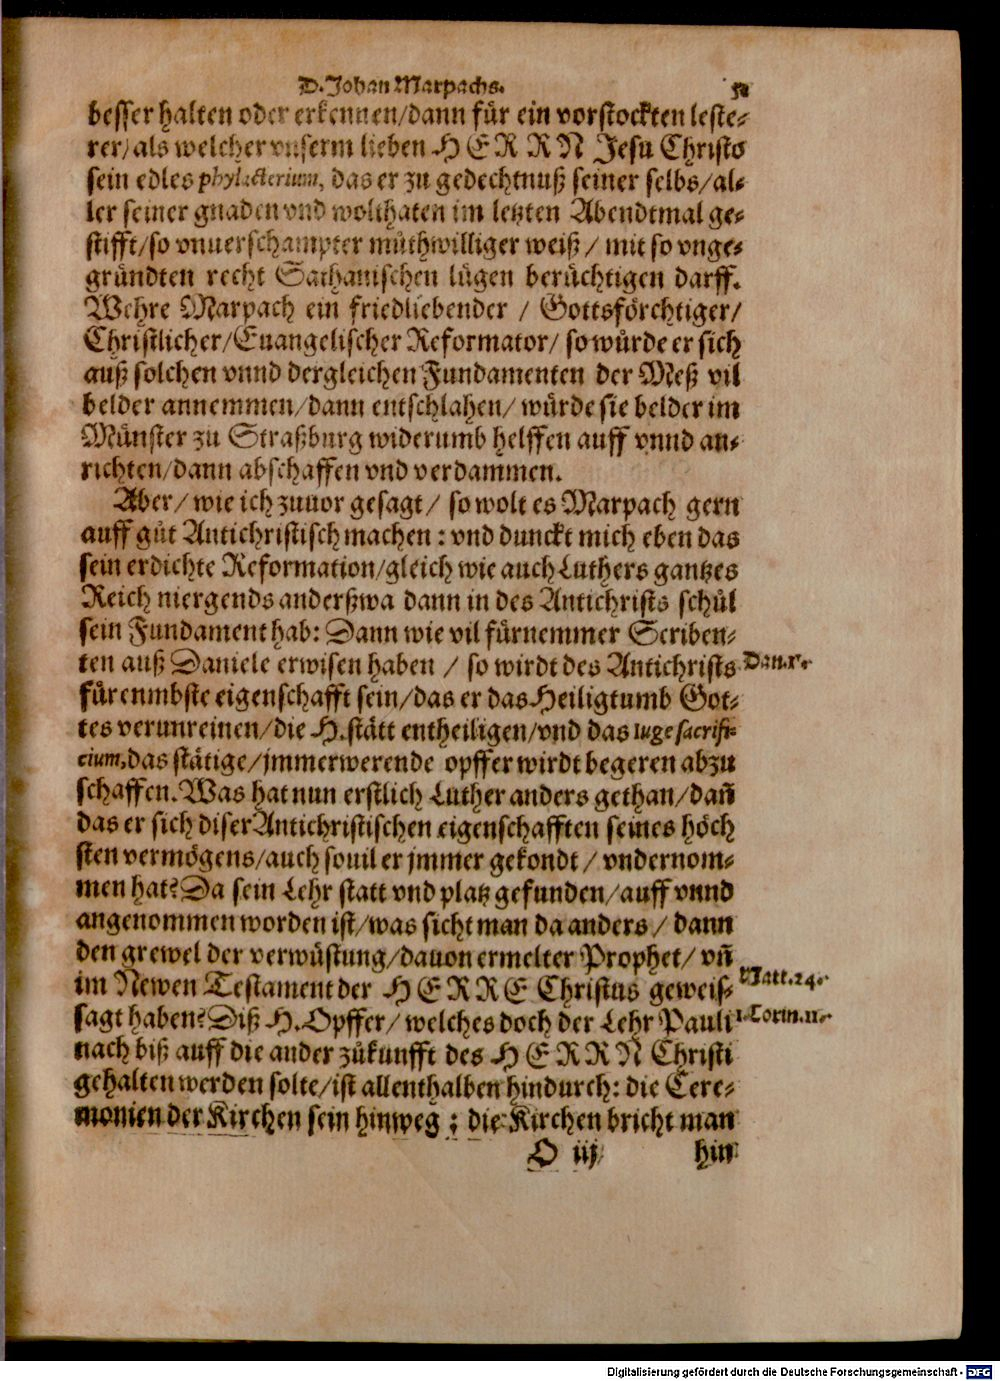 D. Johan Marpachs.
besser halten oder erkennen/dann für ein vorstockten leste-
rer/als welcher vnserm lieben HERRN Jesu Christo
sein edles phylacterium, das er zu gedechtnuß seiner selbs/al-
ler seiner gnaden vnd wolthaten im letzten Abendtmal ge-
stifft/so vnuerschampter můthwilliger weiß/ mit so vnge-
gründten recht Sathanischen lügen berüchtigen darff.
Wehre Marpach ein friedliebender / Gottsförchtiger/
Christlicher/Euangelischer Reformator/ so würde er sich
auß solchen vnnd dergleichen Fundamenten der Meß vil
belder annemmen/dann entschlahen/ würde sie belder im
Münster zu Straßburg widerumb helffen auff vnnd an-
richten/dann abschaffen vnd verdammen.
Aber/ wie ich zuuor gesagt/ so wolt es Marpach gern
auff gůt Antichristisch machen: vnd dunckt mich eben das
sein erdichte Reformation/gleich wie auch Luthers gantzes
Reich niergends anderßwa dann in des Antichrists schůl
sein Fundament hab: Dann wie vil fürnemmer Scriben-
ten auß Daniele erwisen haben / so wirdt des Antichrists
fürenmbste eigenschafft sein/das er das Heiligtumb Got-
tes verunreinen/die H.stätt entheiligen/vnd das iuge sacrifi-
cium, das stätige/jmmerwerende opffer wirdt begeren abzu
schaffen. Was hat nun erstlich Luther anders gethan/dañ
das er sich diser Antichristischen eigenschafften seines höch
sten vermögens/auch souil er jmmer gekondt/ vndernom-
men hat? Da sein Lehr statt vnd platz gefunden/auff vnnd
angenommen worden ist/was sicht man da anders/ dann
den grewel der verwüstung/dauon ermelter Prophet/ vñ
im Newen Testament der HERRE Christus geweis-
sagt haben? Diß H.Opffer/ welches doch der Lehr Pauli
nach biß auff die ander zůkunfft des HERRN Christi
gehalten werden solte/ist allenthalben hindurch: die Cere-
monien der Kirchen sein hinweg; die Kirchen bricht man
O iij hin
Dan.
Matt.24.
1.Corin.11.
Digitalisierung gefördert durch die Deutsche Forschungsgemeinschaft - DFG